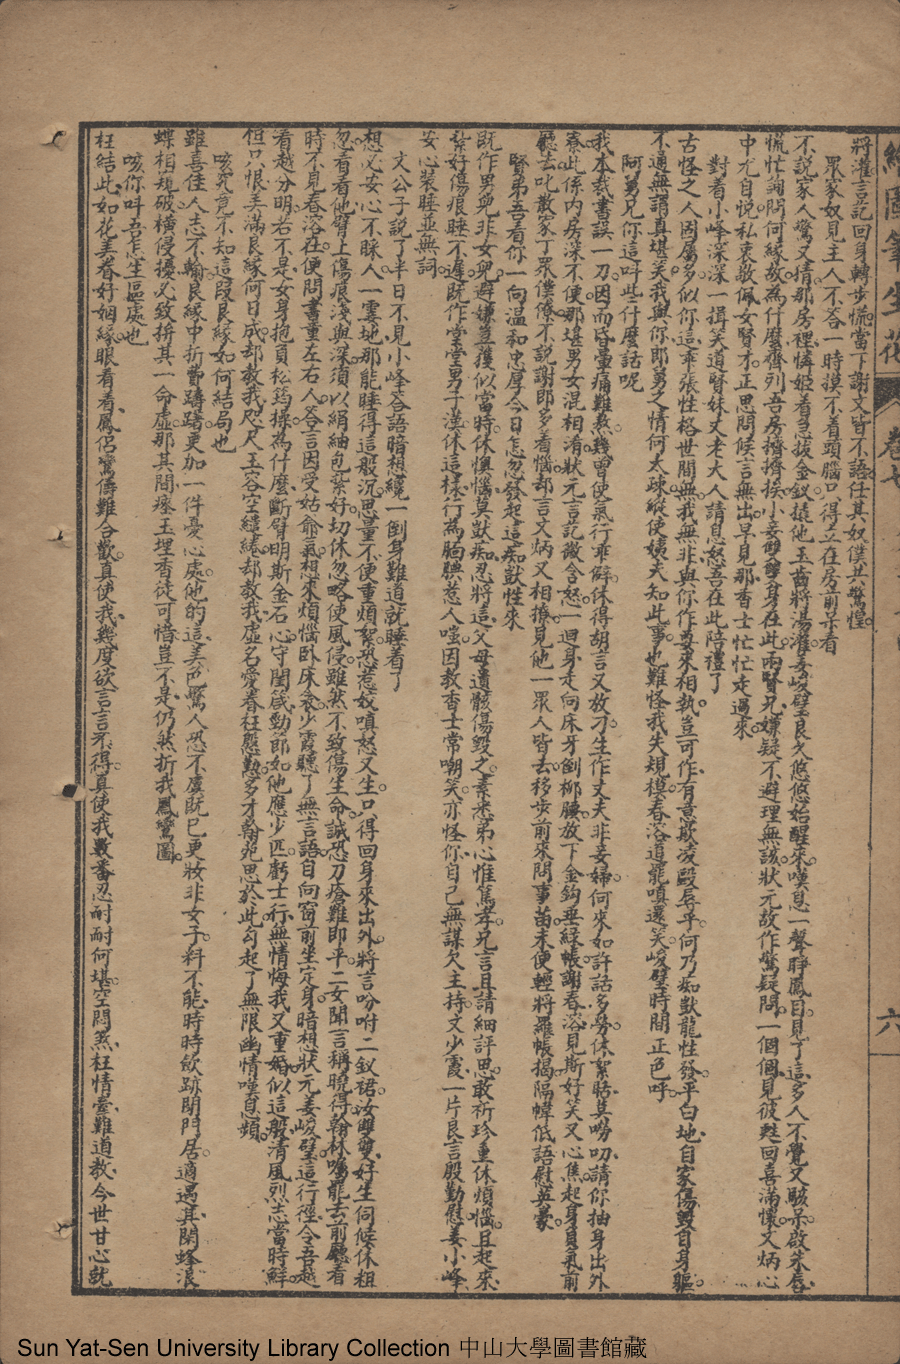 繪圖筆生花 卷七 六
將灌言記回身轉步慌當下謝文皆不語任其奴僕共驚惶
眾家奴見主人不答一時摸不着頭腦只得立在房前呆看
不說家人驚又猜那房裡憐姬着急拔金釵撬他玉齒將湯灌姜峻璧良久悠悠始醒來嘆息一聲睜鳳目見了這多人不覺又駭呆啟朱唇
慌忙詢問何緣故為什麼齊列吾房擠擠挨小姜雙雙身在此兩賢兄嫌疑不避理無該狀元故作驚疑問一個個見彼甦回喜滿懷文炳心
中尤自悅私衷敬佩女賢才正思問候言無出早見那香士忙忙走過來
對着小峰深深一揖笑道賢妹丈老大人請息怒吾在此陪禮了
阿舅兄你這呌些什麼話呢
古怪之人固屬多似你這乖張性格世間無我無非與你作耍來相執豈可作有意欺凌毆辱乎何乃如獃龍性發平白地自家傷毀自身軀
不通無謂真堪笑我與你郎舅之情何太疎縱使姨夫知此事也難怪我失規模春溶道罷嗔還笑峻璧時間正色呼
我本裁書誤一刀因而昏暈痛難熬幾曾使氣行乖僻休得胡言又放刁生作丈夫非妾婦何來如許話多勞休絮聒莫嘮叨請你抽身出外
春此係內房深不便那堪男女混相淆狀元言記微含怒一迴身走向床牙倒柳腰放下金鈎垂綠帳謝春溶見斯好笑又心焦起身負氣前
廳去叱散家丁眾僕僚不說謝郎多着惱却言文炳又相撩見他一眾人皆去移步前來問事苗未便輕將羅帳揭隔幃低語慰英豪
賢弟吾看你一向溫和忠厚今日怎忽發起這痴獃性來
既作男兒非女兒避嫌豈獲似當時休懊惱莫獃痴忍將這父母遺骸傷毀之素悉弟心惟篤孝兄言且請細評思敢祈珍重休煩惱且起來
紮好傷痕睡不遲既作堂堂男子漢休這樣行為腼腆惹人嗤因教香士常嘲笑亦怪你自己無謀欠主持文少霞一片良言殷勤慰姜小峰
安心裝睡並無詞
文公子說了半日不見小峰答語暗想纔一倒身難道就睡着了
想必安心不睬人一霎地那能睡得這般沉思量不便重煩絮恐惹奴嗔怒又生只得回身來出外將言吩咐二釵裙汝雙雙好生伺候休粗
忽看看他臂上傷痕淺與深須以絹紬包紮好切休忽略使風侵雖然不致傷生命誠恐刀瘡難即平二女聞言稱曉得翰林囑罷去前廳看
時不見春溶在便問書童左右人答言因受姑爺氣想來煩惱臥床衾少霞聽了無言語自向窗前坐定身暗想狀元姜峻璧這行徑令吾越
看越分明若不是女身抱負松筠操為什麼斷臂明斯金石心守閨箴勁節如他應少匹虧士行無情悔我又重婚似這般清風烈志當時鮮
但只恨美滿良緣何日成却教我咫尺玉容空繾綣却教我虛名愛眷枉慇懃多才翰苑思於此勾起了無限幽情嘆息頻
咳究竟不知這段良緣如何結局也
雖喜佳人志不輸良緣中折費躊躇更加一件憂心處他的這美色驚人恐不虞既已更妝非女子料不能時時歛跡閉門居適遇其閑蜂浪
蝶相窺破橫侵擾必致拚其一命虛那其間瘞玉埋香徒可惜豈不是仍然折我鳳鸞圖
咳你呌吾怎生區處也
枉結此如花美眷好姻緣眼看看鳳侶鸞儔難合歡真使我幾度欲言言不得真使我數番忍耐耐何堪空悶煞枉情臺難道教今世甘心就